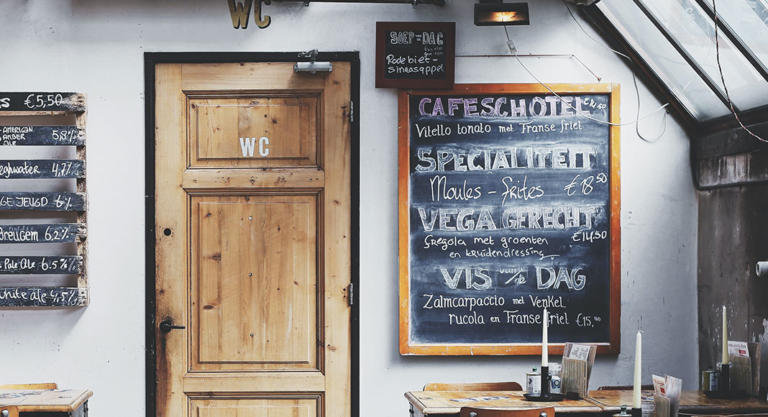 WC
WC
s €5,50
AMERICAN
AMBER
ALE 5,8%
eghwater 4,7%
GE JEUGD 6%
dreugem 6,2%
Pale Ale 6,5%
White Ale 4,5%
SOEP - DAG
Rode biet -
sinaasappel
CAFESCHOTEL
Vitello tonato met Franse friet
SPECIALITEIT
Moules - frites €18,50
VEGA GERECHT
€14,50
Fregola met groenten
en kruidendressing
VIS DAG
Zalmcarpaccio met Venkel
rucola en Franse friet €15,-